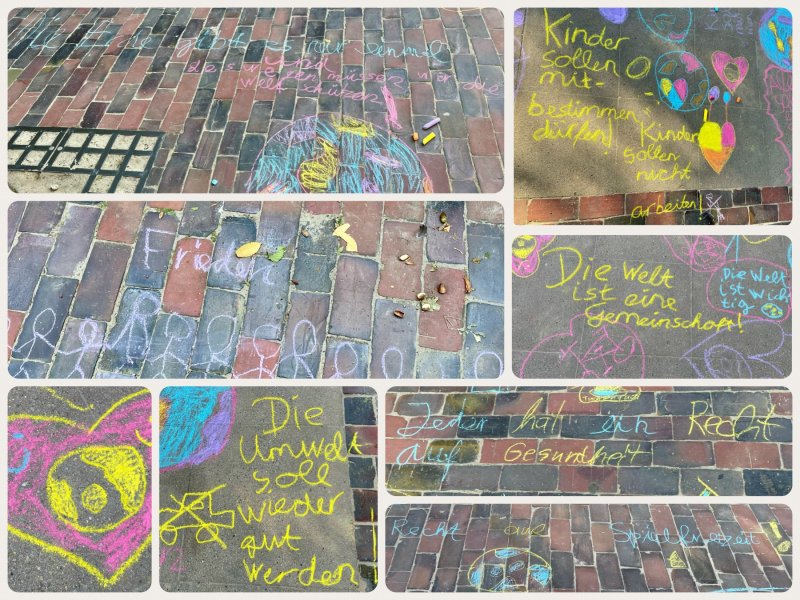 Die Erde gibt es nur einmal
und
deswegen müssen wir die
Welt schützen
Kinder
sollen
mit-
bestimmen
dürfen!
Kinder
sollen
nicht
arbeiten!
Frieden
Die Welt
ist eine
Gemeinschaft!
Die Welt
ist wich
tig
Die
Umwelt
soll
wieder
gut
werden
Jeder hat ein Recht
auf Gesundheit
Recht auf